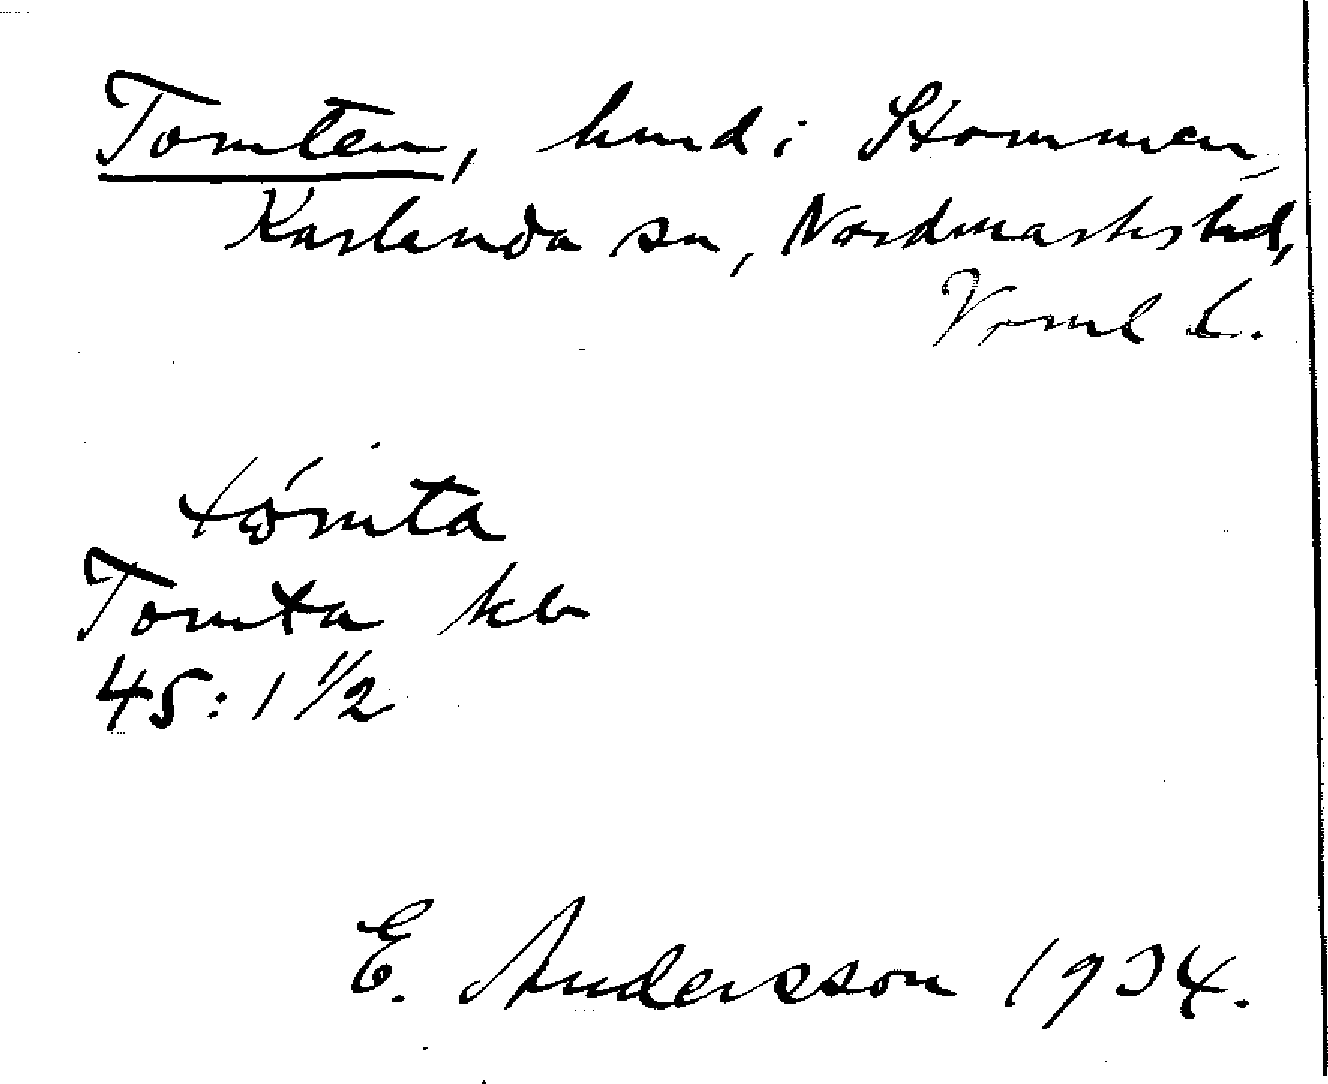 Tomten, hmd i Stommen,
Karlanda sn, Nordmarks hd,
Vrml l.
tǿmta
Tomta kb
45: 1 1/2
E. Andersson 1934.